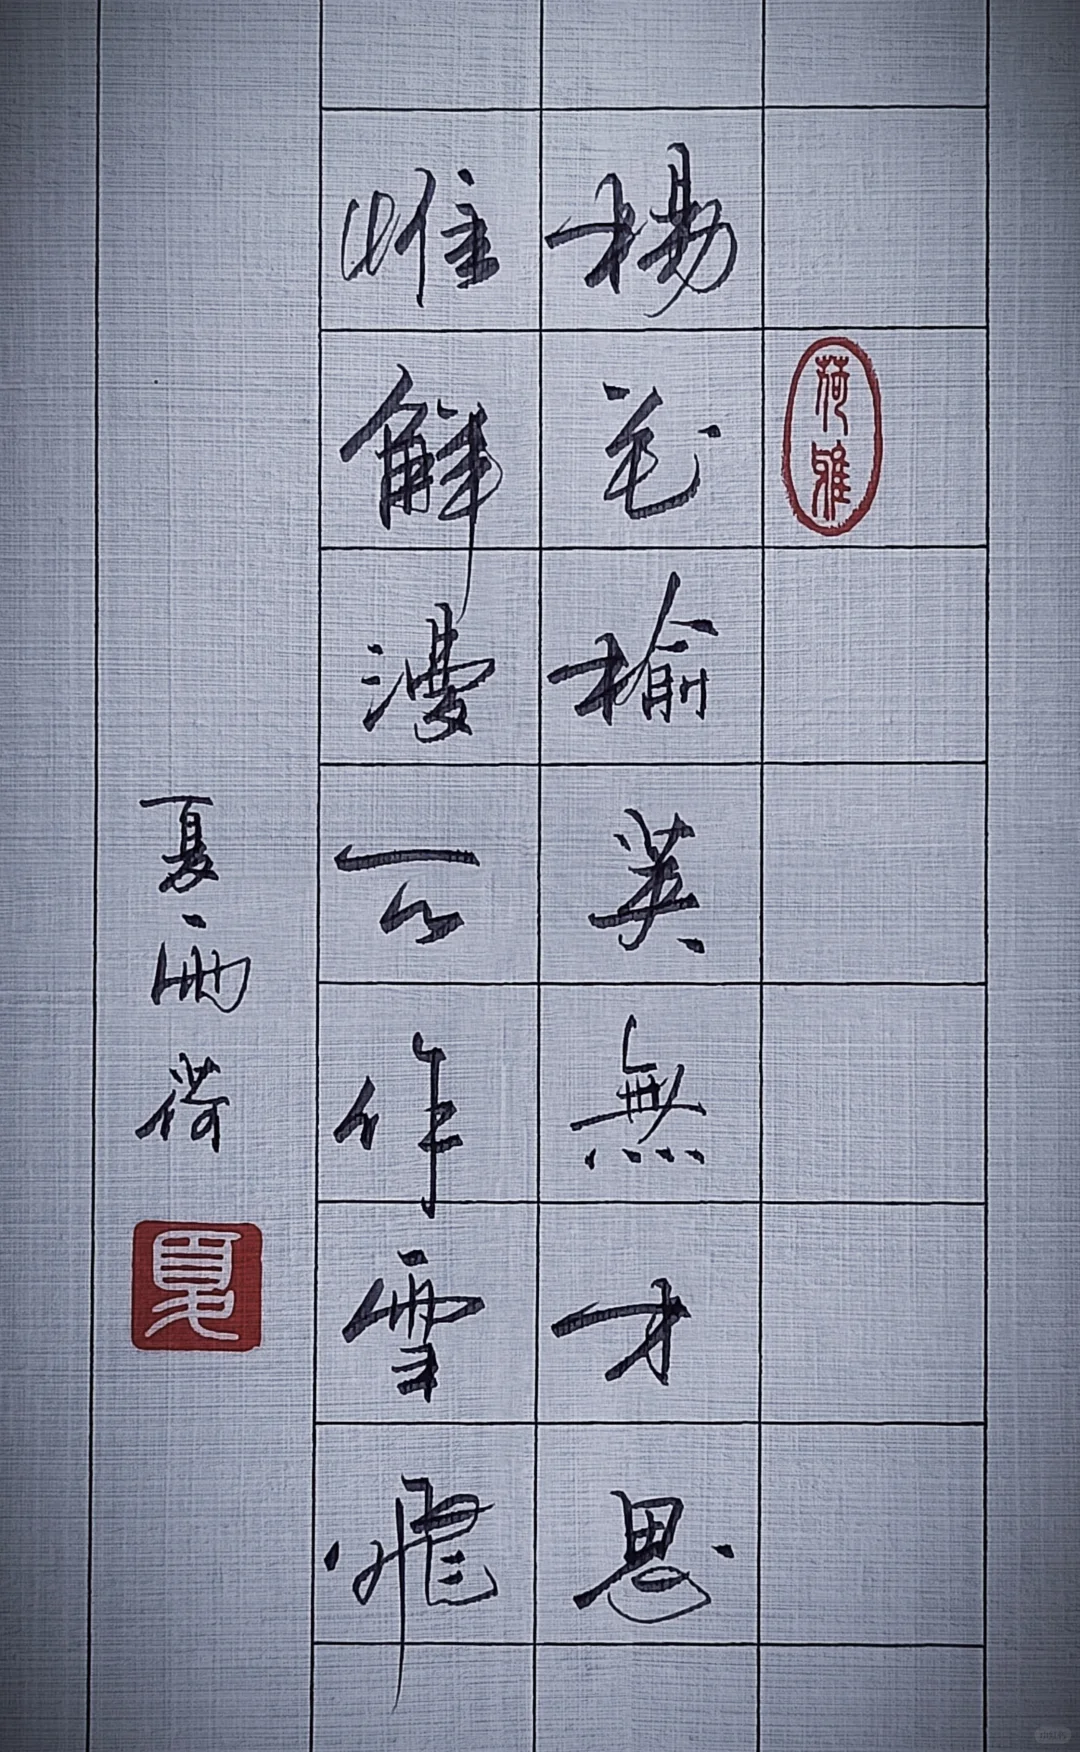 荷雅
楊花榆莢無才思
惟解漫天作雪飛
夏雨荷
夏